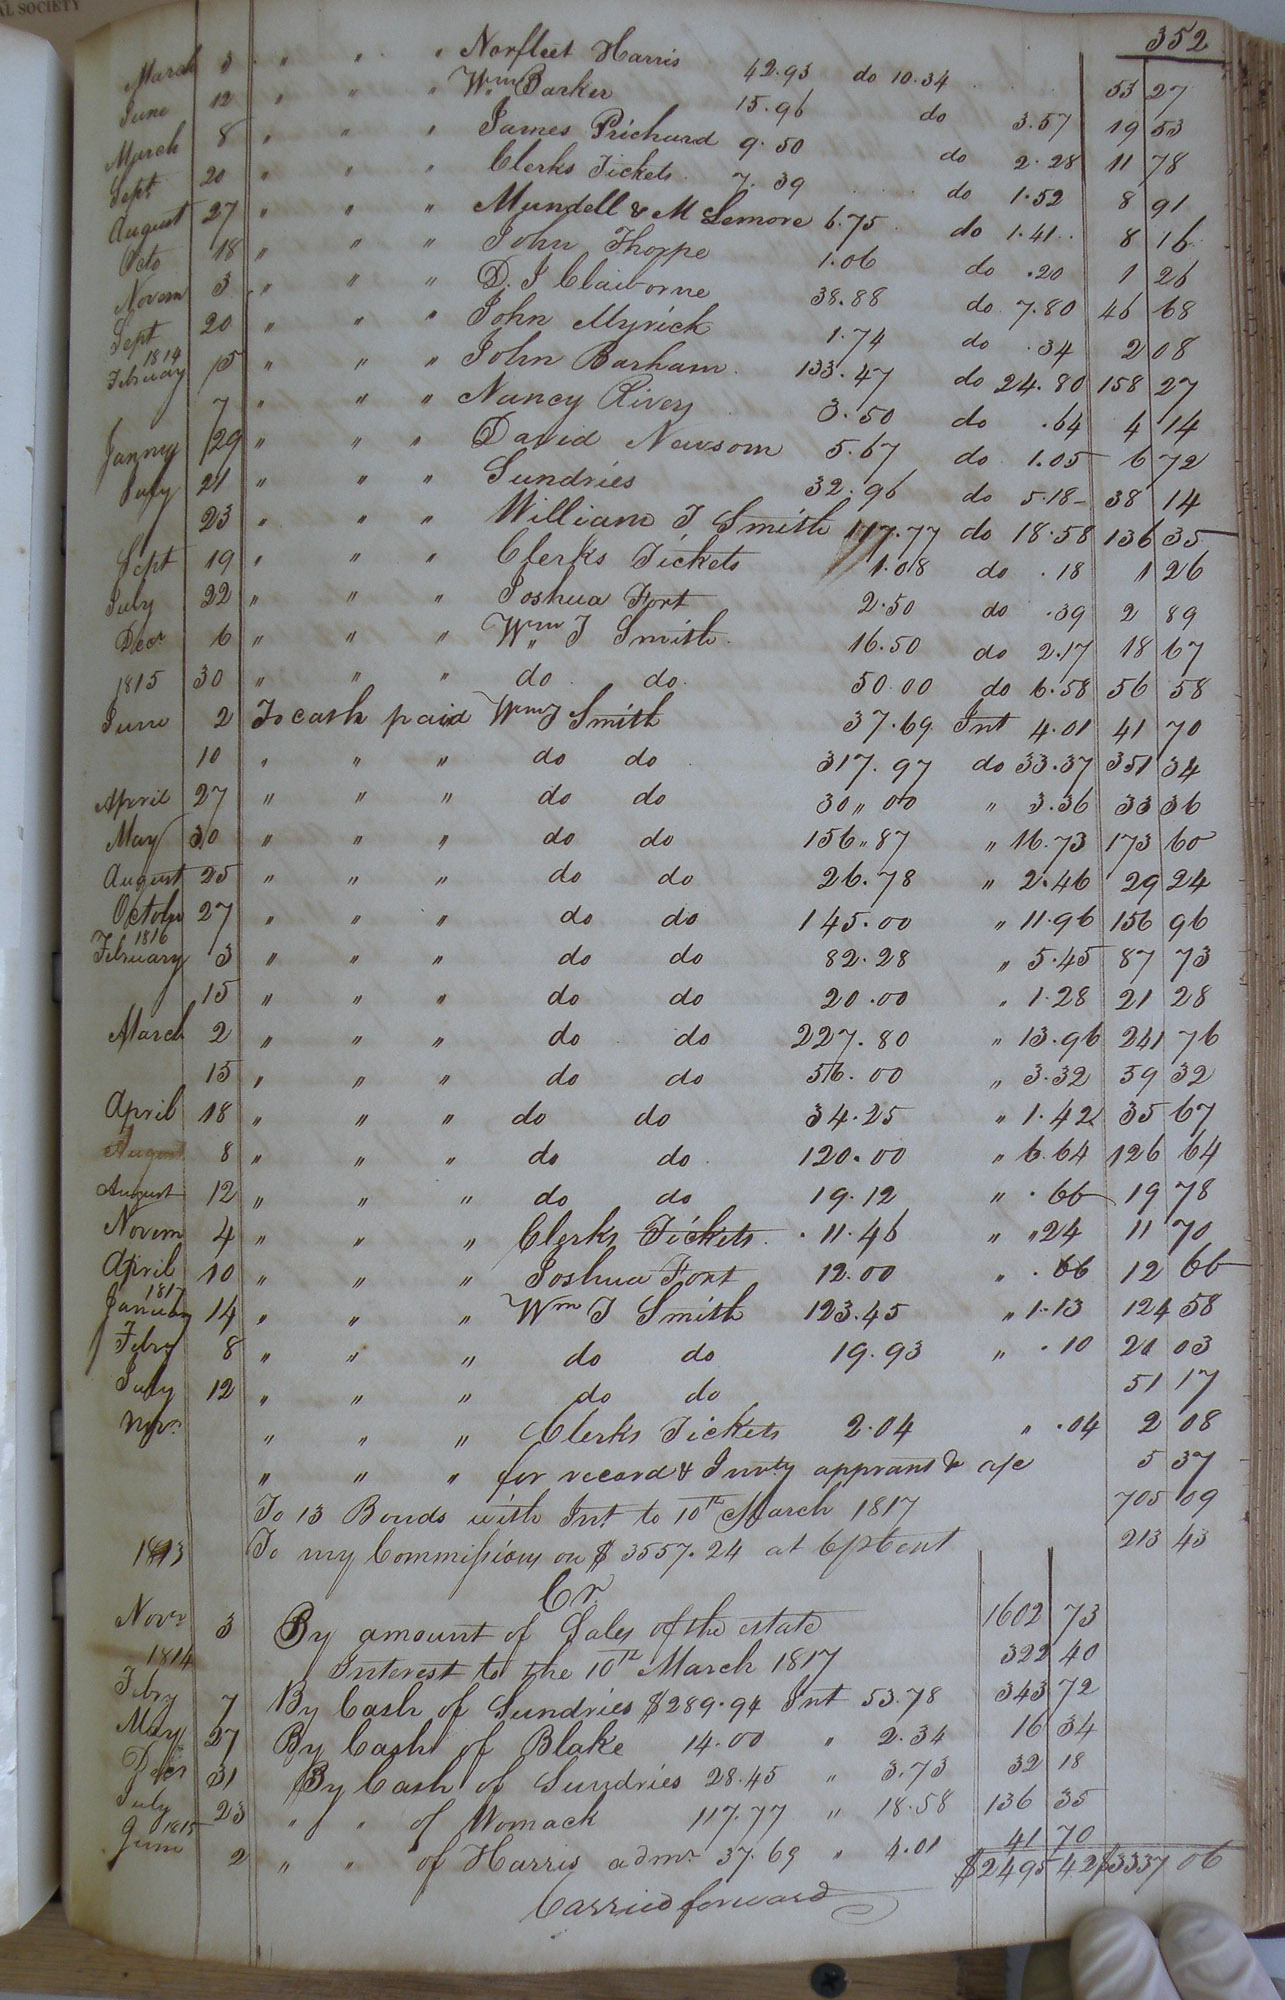 AL SOCIETY
352
March 3 " " " Norfleet Harris 42.93 do 10.34 53 27
June 12 " " " Wm Barker 15.96 do 3.57 19 53
March 8 " " " James Prichard 9.50 do 2.28 11 78
Sept 20 " " " Clerks Tickets 7.39 do 1.52 8 91
August 27 " " " Mundell & McLemore 6.75 do 1.41 8 16
Octo 18 " " " John Thorpe 1.06 do .20 1 26
Novem 3 " " " D. J Claiborne 38.88 do 7.80 46 68
Sept 20 " " " John Myrick 1.74 do .34 2 08
1814
February 15 " " " John Barham 133.47 do 24.80 158 27
7 " " " Nancy Rivers 3.50 do .64 4 14
Janury 29 " " " David Newsom 5.67 do 1.05 6 72
July 21 " " " Sundries 32.96 do 5.18 38 14
23 " " " William J Smith 117.77 do 18.58 136 35
Sept 19 " " " Clerks Tickets 1.08 do .18 1 26
July 22 " " " Joshua Fort 2.50 do .39 2 89
Decr 6 " " " Wm J Smith 16.50 do 2.17 18 67
1815 30 " " " do do 50.00 do 6.58 56 58
June 2 To cash paid Wm J Smith 37.69 Int 4.01 41 70
10 " " " do do 317.97 do 33.37 351 34
April 27 " " " do do 30"00 " 3.36 33 36
May 30 " " " do do 156"87 " 16.73 173 60
August 25 " " " do do 26.78 " 2.46 29 24
October 27 " " " do do 145.00 " 11.96 156 96
1816
February 3 " " " do do 82.28 " 5.45 87 73
15 " " " do do 20.00 " 1.28 21 28
March 2 " " " do do 227.80 " 13.96 241 76
15 " " " do do 56.00 " 3.32 59 32
April 18 " " " do do 34.25 " 1.42 35 67
August 8 " " " do do 120.00 " 6.64 126 64
August 12 " " " do do 19.12 " .66 19 78
Novem 4 " " " Clerks Tickets 11.46 " "24 11 70
April 10 " " " Joshua Fort 12.00 " .66 12 66
1817
January 14 " " " Wm J Smith 123.45 " 1.13 124 58
Febry 8 " " " do do 19.93 " .10 20 03
July 12 " " " do do 51 17
Novr " " " Clerks Tickets 2.04 " .04 2 08
" " " for record & Invty apprant & a/c 5 37
To 13 Bonds with Int to 10th March 1817 705 09
1813 To my Commissions on $3557.24 at 6 pr Cent 213 43
Cr
Novr 3 By amount of Sales of the estate 1602 73
1814 Interest to the 10th March 1817 322 40
Febry 7 By Cash of Sundries $289.94 Int 53.78 343 72
May 27 By Cash of Blake 14.00 " 2.34 16 34
Decr 31 By Cash of Sundries 28.45 " 3.73 32 18
July 23 " " of Womack 117.77 " 18.58 136 35
1815
June 2 " " of Harris admr 37.69 " 4.01 41 70
$2495 42 $3337 06
Carried forward